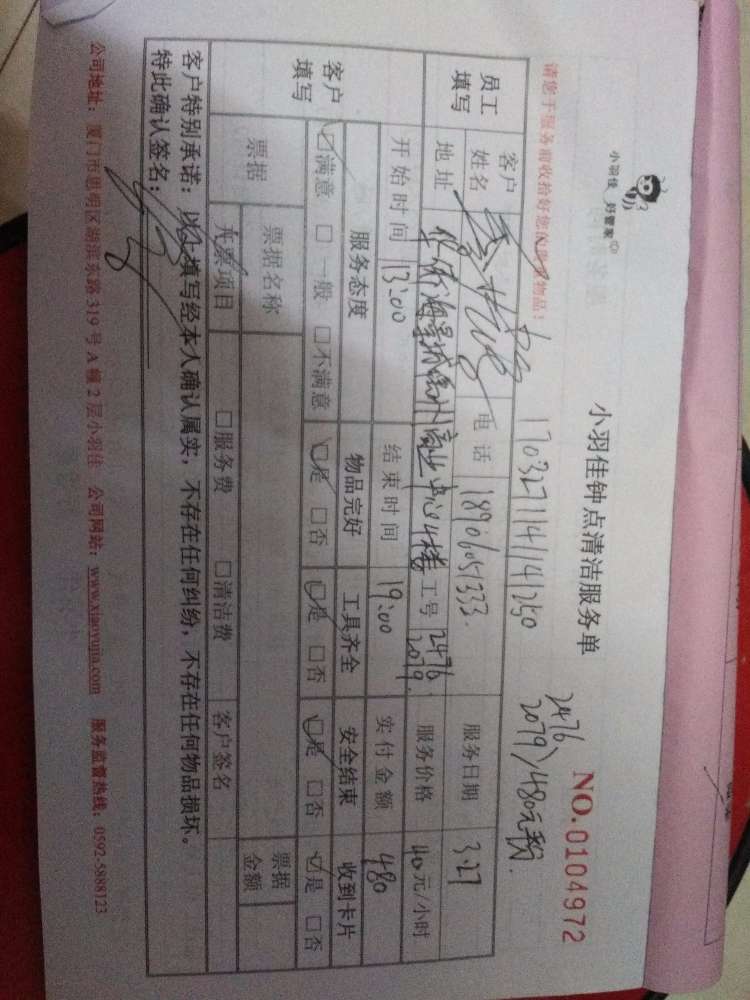 小羽佳 好管家
小羽佳钟点清洁服务单
NO.0104972
请您于服务前收拾好您的贵重物品!
170327114141250
2476
2079 480元
员工填写
客户姓名
电话 18906051333
服务日期 3.27
地址 海景城 商业中心4楼
工号 2476 2079
服务价格 40元/小时
开始时间 13:00
结束时间 19:00
实付金额 480
客户填写
服务态度 物品完好 工具齐全 安全结束 收到卡片
☑满意 □一般 □不满意 ☑是 □否 ☑是 □否 ☑是 □否 ☑是 □否
票据 票据名称 票据金额
开票项目 □服务费 □清洁费 客户签名
客户特别承诺:以上填写经本人确认属实,不存在任何纠纷,不存在任何物品损坏。
特此确认签名:
公司地址:厦门市思明区湖滨东路319号A幢2层小羽佳 公司网站:www.xiaoyujia.com 服务监督热线:0592-5888123